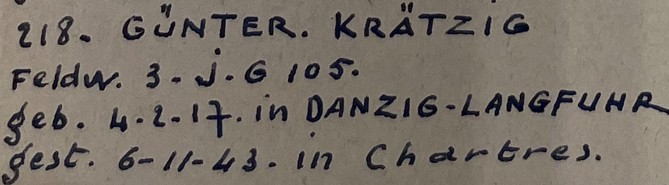 218. GÜNTER. KRÄTZIG
Feldw. 3-J.G 105.
geb. 4-2-17. in DANZIG-LANGFUHR
gest. 6-11-43. in Chartres.